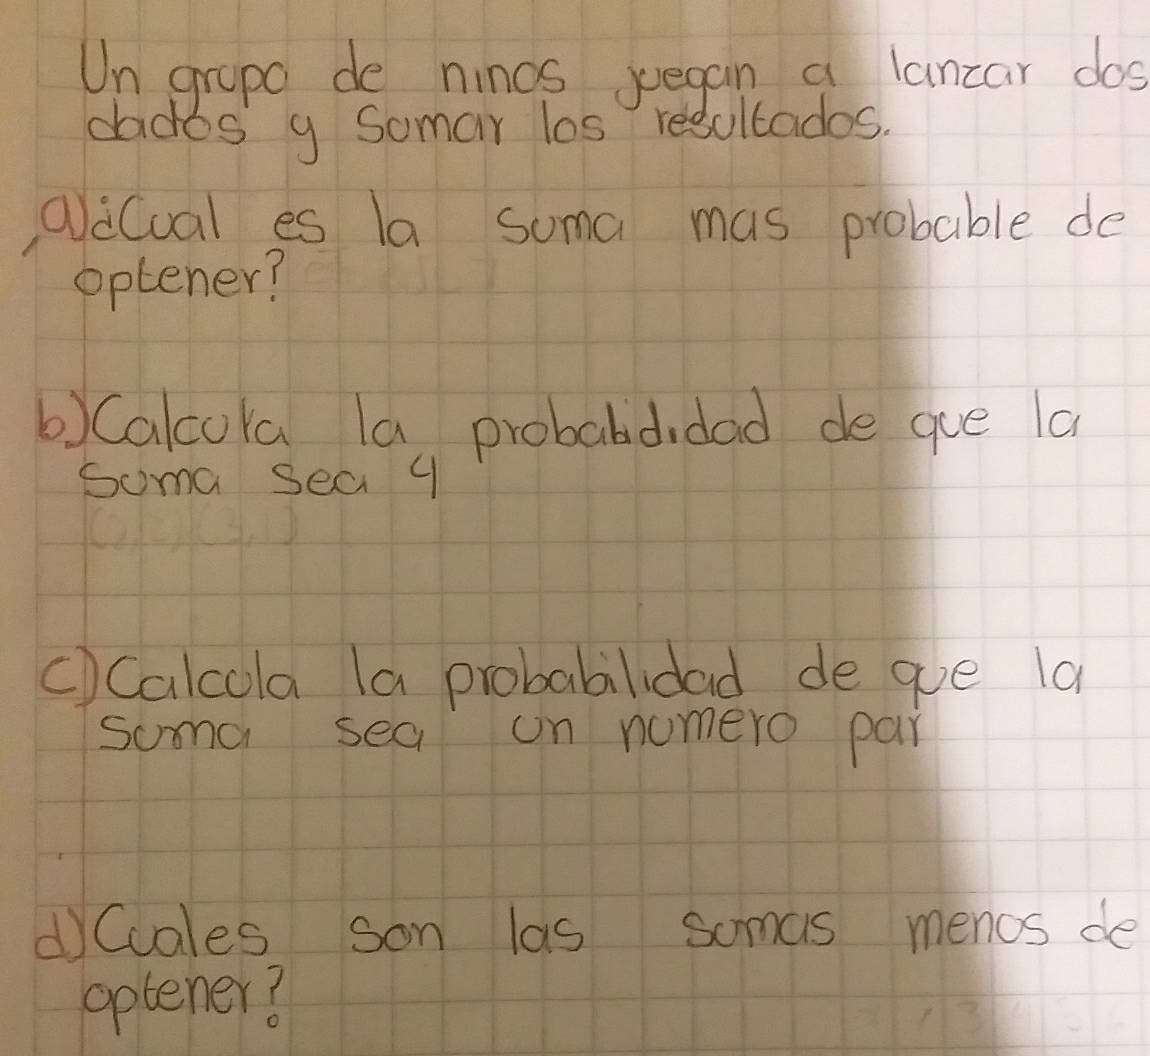 Un grupo de ninos juegan a lanzar dos
dados y Somar los resultados.
a) ¿Cual es la suma mas probable de
optener?
b.) Calcula la probabididad de que la
Suma Sea 4
c) Calcula la probabilidad de que la
suma sea un numero par
d) Cuales son las sumas menos de
optener?